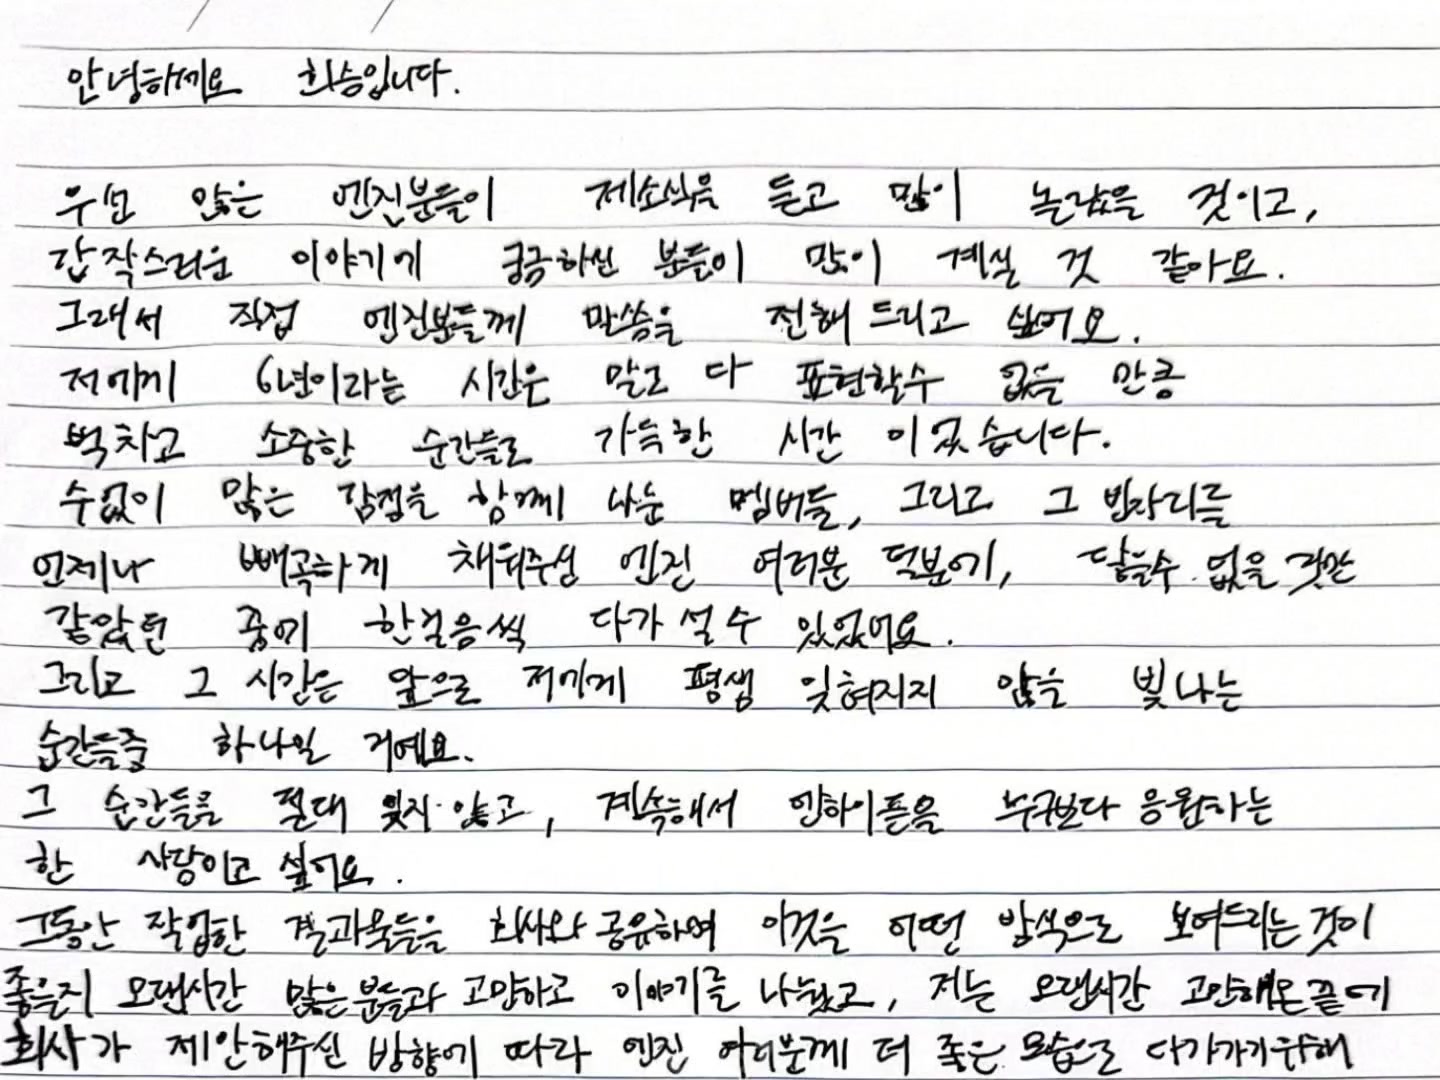 안녕하세요 희승입니다.
우선 많은 엔진분들이 제소식을 듣고 많이 놀랐을 것이고,
갑작스러운 이야기에 궁금하신 분들이 많이 계실 것 같아요.
그래서 직접 엔진분들께 말씀을 전해 드리고 싶어요.
저에게 6년이라는 시간은 말로 다 표현할수 없을 만큼
벅차고 소중한 순간들로 가득한 시간 이었습니다.
수없이 많은 감정을 함께 나눈 멤버들, 그리고 그 빈자리를
언제나 빼곡하게 채워주신 엔진 여러분 덕분에, 닿을수 없을 것만
같았던 꿈에 한걸음씩 다가 설 수 있었어요.
그리고 그 시간은 앞으로 저에게 평생 잊혀지지 않을 빛나는
순간들중 하나일 거예요.
그 순간들을 절대 잊지 않고, 계속해서 엔하이픈을 누구보다 응원하는
한 사람이고 싶어요.
그동안 작업한 결과물들을 회사와 공유하며 이것을 어떤 방식으로 보여드리는것이
좋을지 오랜시간 많은분들과 고민하고 이야기를 나눴고, 저는 오랜시간 고민해온끝에
회사가 제안해주신 방향에 따라 엔진 여러분께 더 좋은 모습으로 다가가기위해